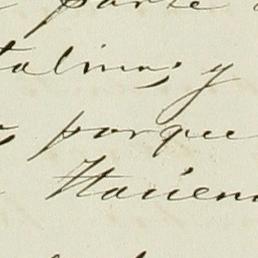 parte
talina; y
porque
Hacien